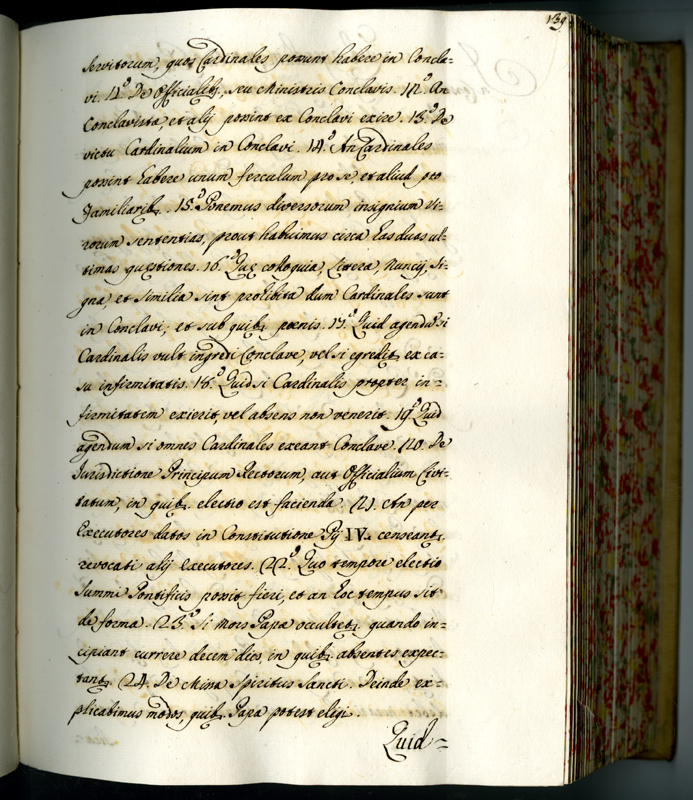 139
servitorum, quos Cardinales possunt habere in Concla=
vi. 11.º De Officialib3, seu Ministris Conclavis. 12.º An
Conclavista, et alij possint ex Conclavi exire. 13.º De
victu Cardinalium in Conclavi. 14.º An Cardinales
possint habere unum ferculum pro se, et aliud pro
familiarib3. 15.º Ponemus diversorum insignium Vi=
rorum sententias, prout habuimus circa has duas ul=
timas quęstiones. 16.º Quę colloquia, litterę, Nuncij, Si=
gna, et similia sint prohibita dum Cardinales sunt
in Conclavi; et sub quib3 pœnis. 17.º Quid agendũ si
Cardinalis vult ingredi Conclave, vel si egredit^r ex ca=
su infirmitatis. 18.º Quid si Cardinalis propter in=
firmitatem exierit, vel absens non venerit. 19.º Quid
agendum si omnes Cardinales exeant Conclave. (20. De
Jurisdictione Principum Rectorum, aut Officialium Civi=
tatum, in quib3 electio est facienda. (21. An per
Executores datos in Constitutione Pij IV. censeant^r
revocati alij executores. (22.º Quo tempore electio
Summi Pontificis possit fieri, et an hoc tempus sit
de forma. (23.º Si mors Papæ occultet^r quando in=
cipiant currere decem dies, in quib3 absentes expec=
tant^r. (24. De Missa Spiritus Sancti. Deinde ex=
plicabimus modos, quib3 Papa potest eligi.
Quid=